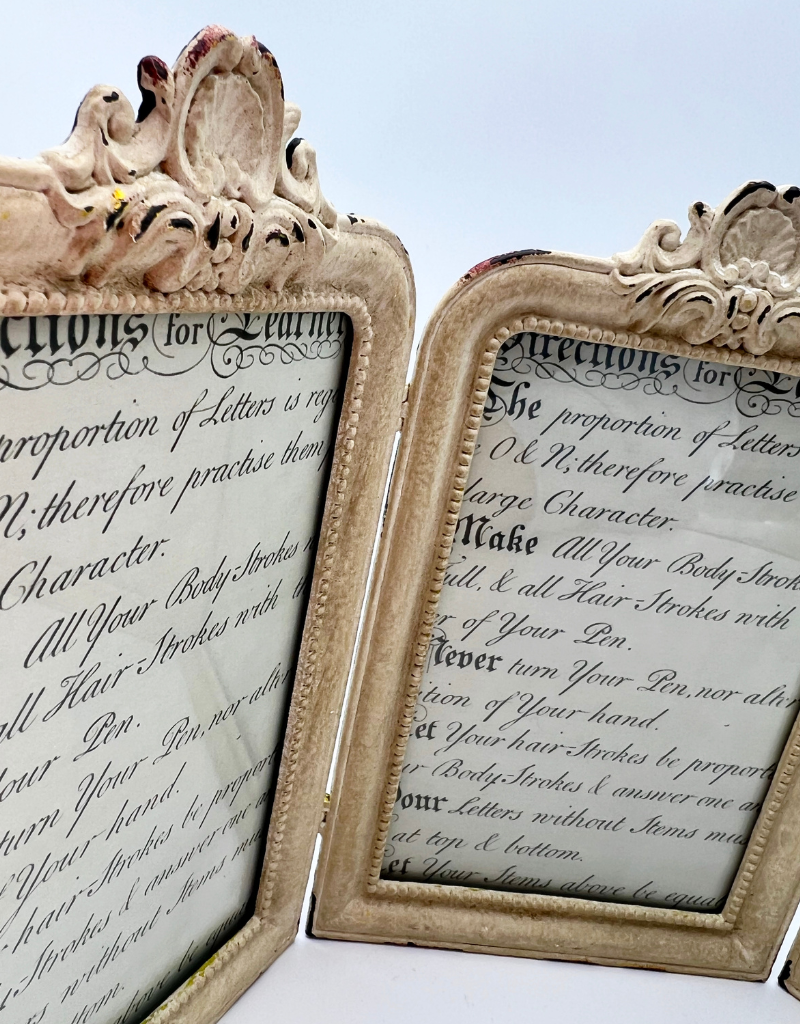 ctions for Learner
proportion of Letters is reg
N; therefore practise them
Character.
All Your Body-Strokes
all Hair-Strokes with
our Pen.
turn Your Pen, nor alter
f Your hand.
hair-Strokes be proport
y-Strokes & answer one a
rs without Stems mu
tom.
above be equa
Directions for Le
The proportion of Letters
e O & N; therefore practise
large Character.
Make All Your Body-Strok
Full, & all Hair-Strokes with
er of Your Pen.
Never turn Your Pen, nor alter
ition of Your hand.
Let Your hair-Strokes be proporti
ur Body-Strokes & answer one an
Your Letters without Stems mus
at top & bottom.
Let Your Stems above be equal